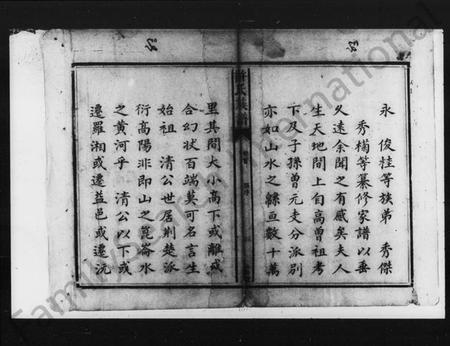 永 俊桂等族弟 秀傑
秀楠等纂修家譜以垂
久遠余聞之有感矣夫人
生天地間上自高曾祖考
下及子孫曾元支分派別
亦如山水之緜亘數十萬
許氏族譜
里其間大小高下或離或
合幻狀百端莫可名言生
始祖 清公世居荆楚派
衍高陽非即山之崑崙水
之黃河乎 清公以下或
遷羅湘或遷益邑或遷沅
FamilySearch International